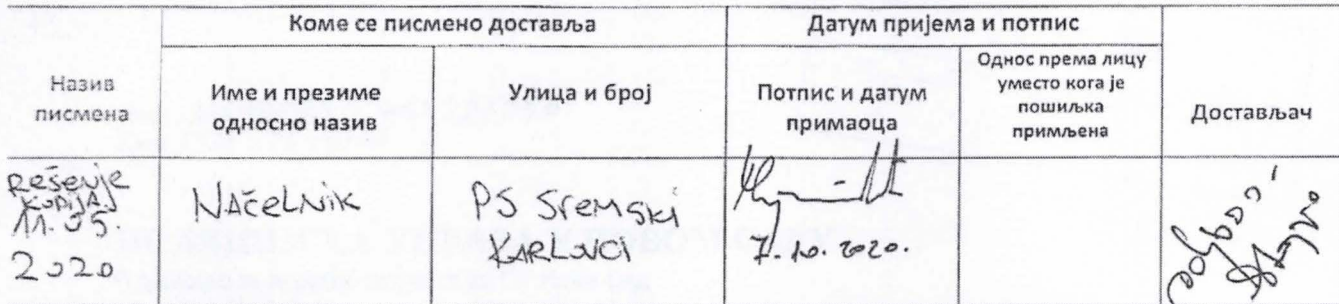 Коме се писмено доставља
Датум пријема и потпис
Назив
писмена
Име и презиме
односно назив
Улица и број
Потпис и датум
примаоца
Однос према лицу
уместо кога је
пошиљка
примљена
Достављач
Rešenje
kopija
11.05.
2020
NAčeLNik
PS Sremski
KARLOVCI
7.10.2020.